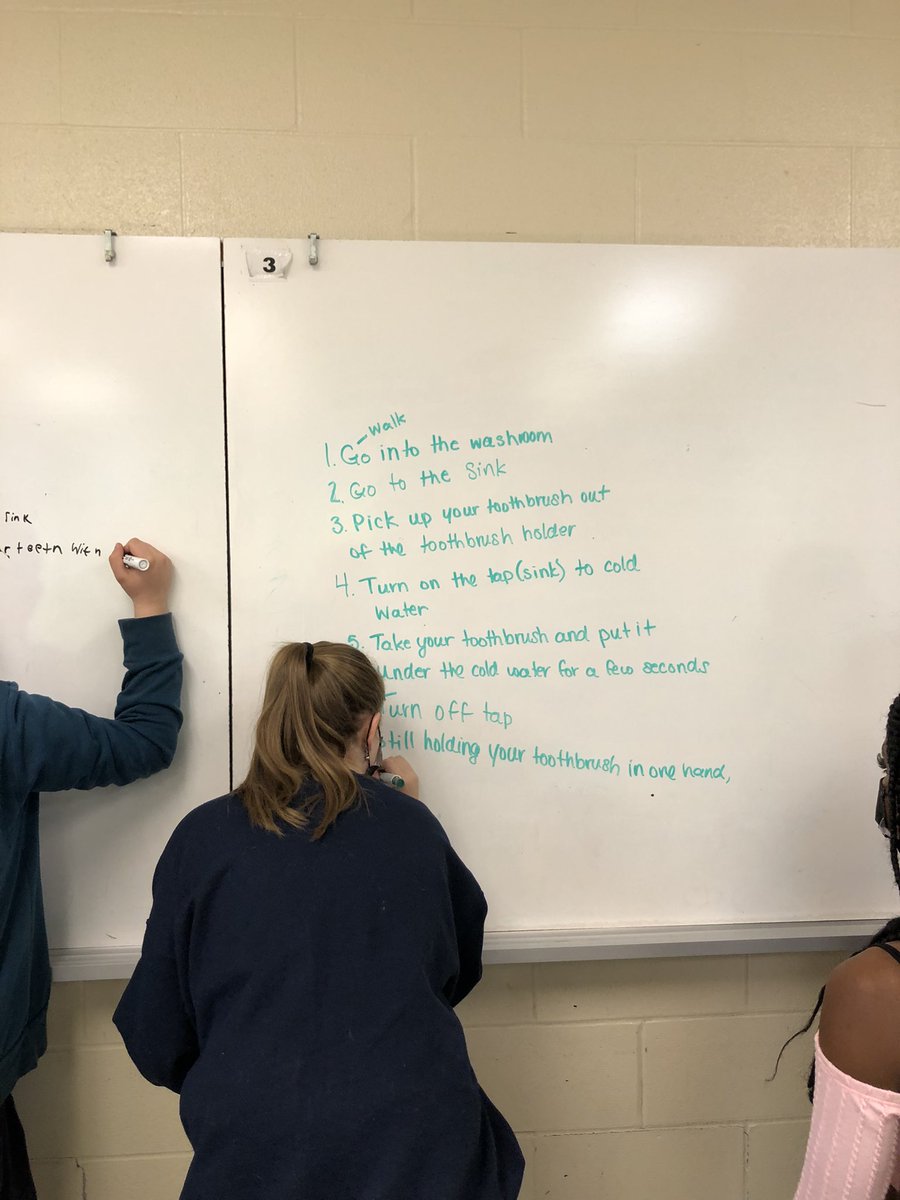 3
walk
1. Go into the washroom
2. Go to the Sink
3. Pick up your toothbrush out
of the toothbrush holder
4. Turn on the tap(sink) to cold
Water
5. Take your toothbrush and put it
under the cold water for a few seconds
Turn off tap
still holding your toothbrush in one hand,
Sink